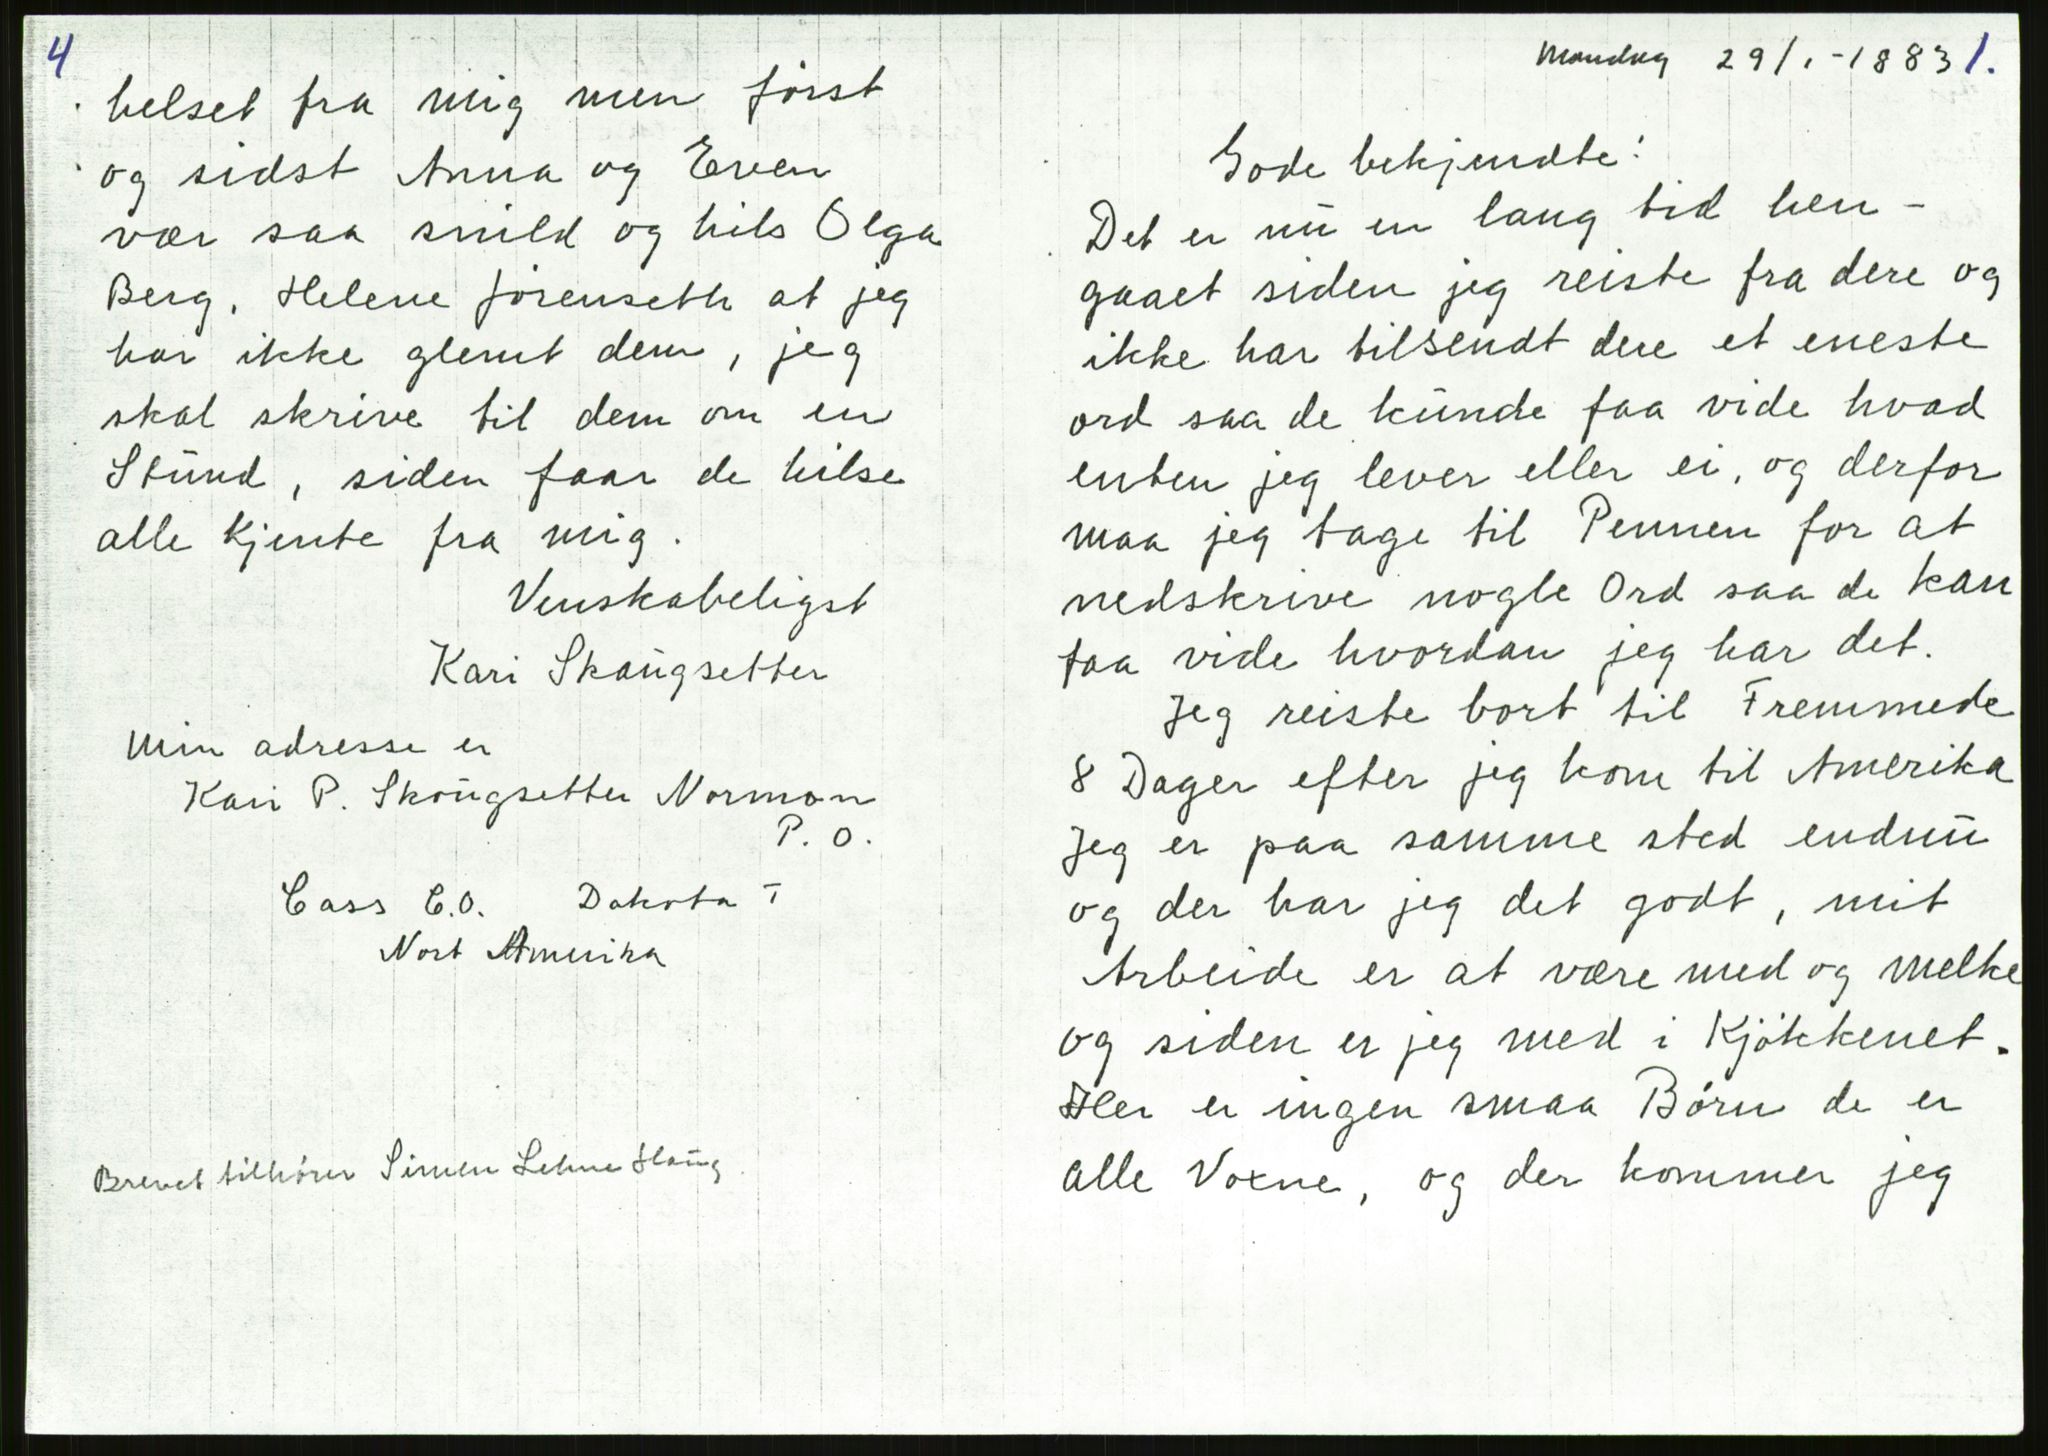 4
helset fra mig men först
og sidst Anna og Even
vær saa snild og hils Olga
Berg, Helene Jörenseth at jeg
har ikke glemt dem, jeg
skal skrive til dem om en
Stund, siden faar de hilse
alle Kjente fra mig.
Venskabeligst
Kari Skaugsetter
Min adresse er
Kari P. Skougsetter Norman
P. O.
Cass C.O. Dakota T
Nort Amerika
Brevet tilhörer Simen Lehne Haug
Mandag 29/1-1883 1.
Gode bekjendte!
Det er nu en lang tid hen-
gaaet siden jeg reiste fra dere og
ikke har tilsendt dere et eneste
ord saa de kunde faa vide hvad
enten jeg lever eller ei, og derfor
maa jeg tage til Pennen for at
nedskrive nogle Ord saa de kan
faa vide hvordan jeg har det.
Jeg reiste bort til Fremmede
8 Dager efter jeg kom til Amerika
Jeg er paa samme sted endnu
og der har jeg det godt, mit
Arbeide er at være med og Melke
og siden er jeg med i Kjökkenet.
Her er ingen smaa Börn de er
alle Voxne, og der kommer jeg